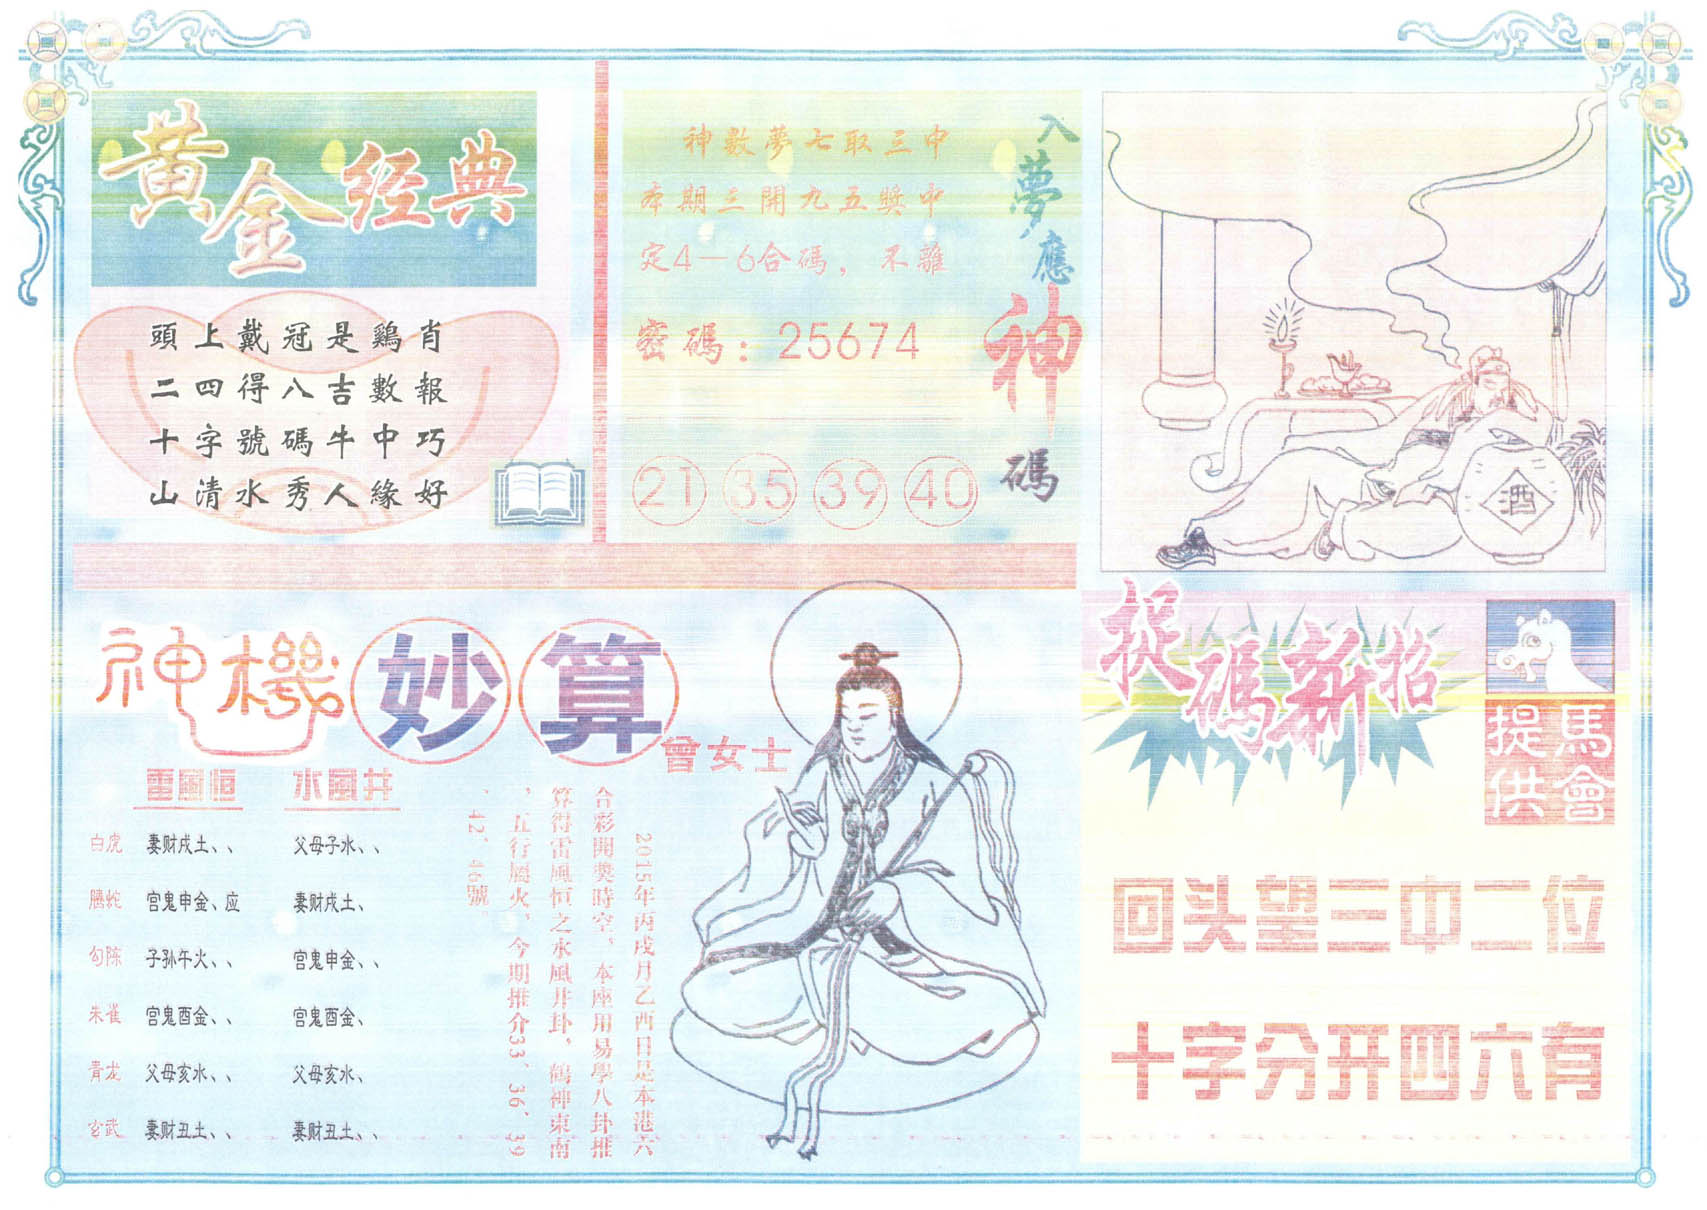 黃金经典
頭上戴冠是鷄肖
二四得八吉數報
十字號碼牛中巧
山清水秀人緣好
神數夢七取三中
本期三開九五獎中
定4－6合碼，不離
密碼：25674
21 35 39 40
入夢應神碼
酒
神機妙算
曾女士
雷風恒 水風井
白虎 妻财戌土、、 父母子水、、
螣蛇 官鬼申金、应 妻财戌土、
勾陈 子孙午火、、 官鬼申金、、
朱雀 官鬼酉金、、 官鬼酉金、
青龙 父母亥水、、 父母亥水、
玄武 妻财丑土、、 妻财丑土、、
2015年丙戌月乙酉日是本港六
合彩開獎時空，本座用易學八卦推
算得雷風恒之水風井卦，鶴神東南
，五行屬火，今期推介33、36、39
、42、46號。
捉碼新招
馬會
提供
回头望三中二位
十字分开四六有